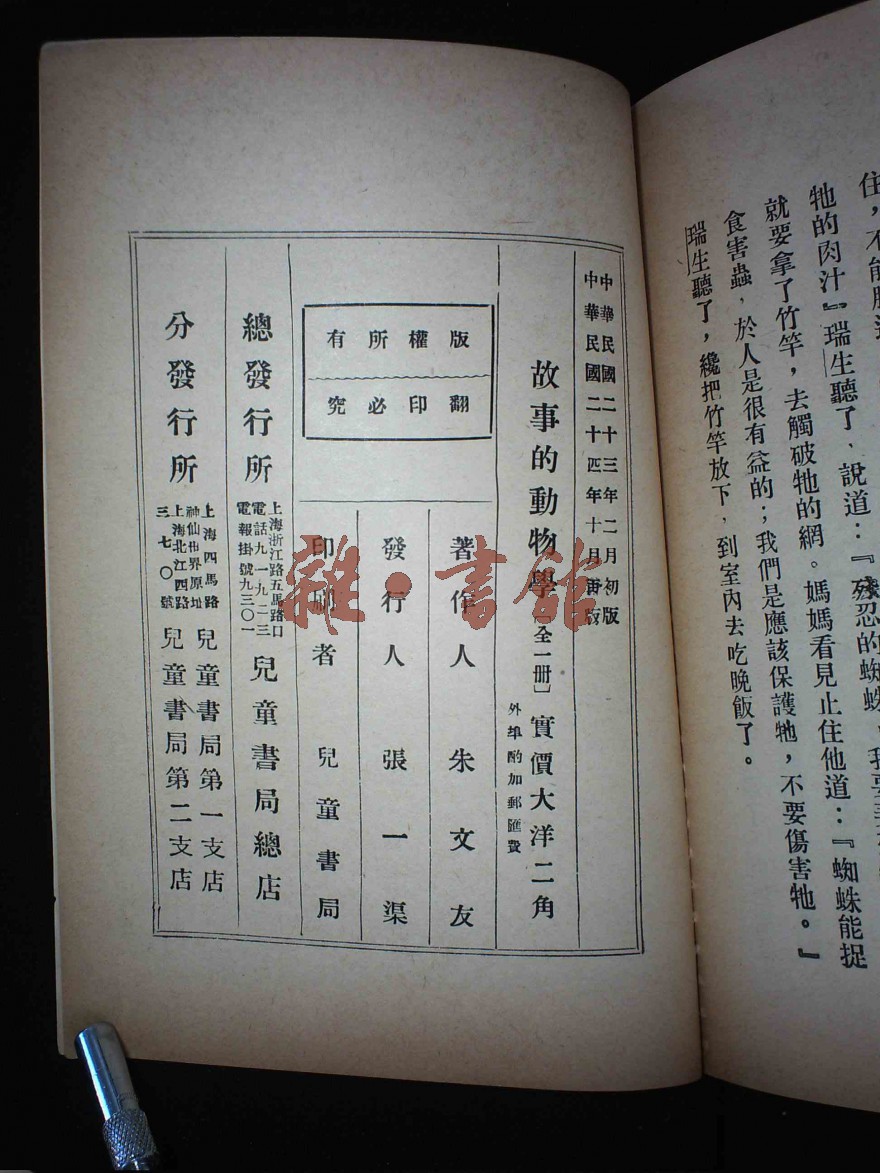 住，不能
牠的肉汁』瑞生聽了，說道：『殘忍的蜘蛛，我要
就要拿了竹竿，去觸破牠的網。媽媽看見止住他道：『蜘蛛能捉
食害蟲，於人是很有益的；我們是應該保護牠，不要傷害牠。』
瑞生聽了，纔把竹竿放下，到室內去吃晚飯了。
中華民國二十三年二月初版
中華民國二十四年十月再版
故事的動物學〔全一冊〕實價大洋二角
外埠酌加郵匯費
著作人 朱文友
發行人 張一渠
印刷者 兒童書局
版權所有
翻印必究
總發行所 上海浙江路五馬路口 電話九一九二三 電報掛號九三〇一 兒童書局總店
分發行所
上海四馬路神仙世界原址 兒童書局第一支店
上海北江四路三七〇號 兒童書局第二支店
雜·書館